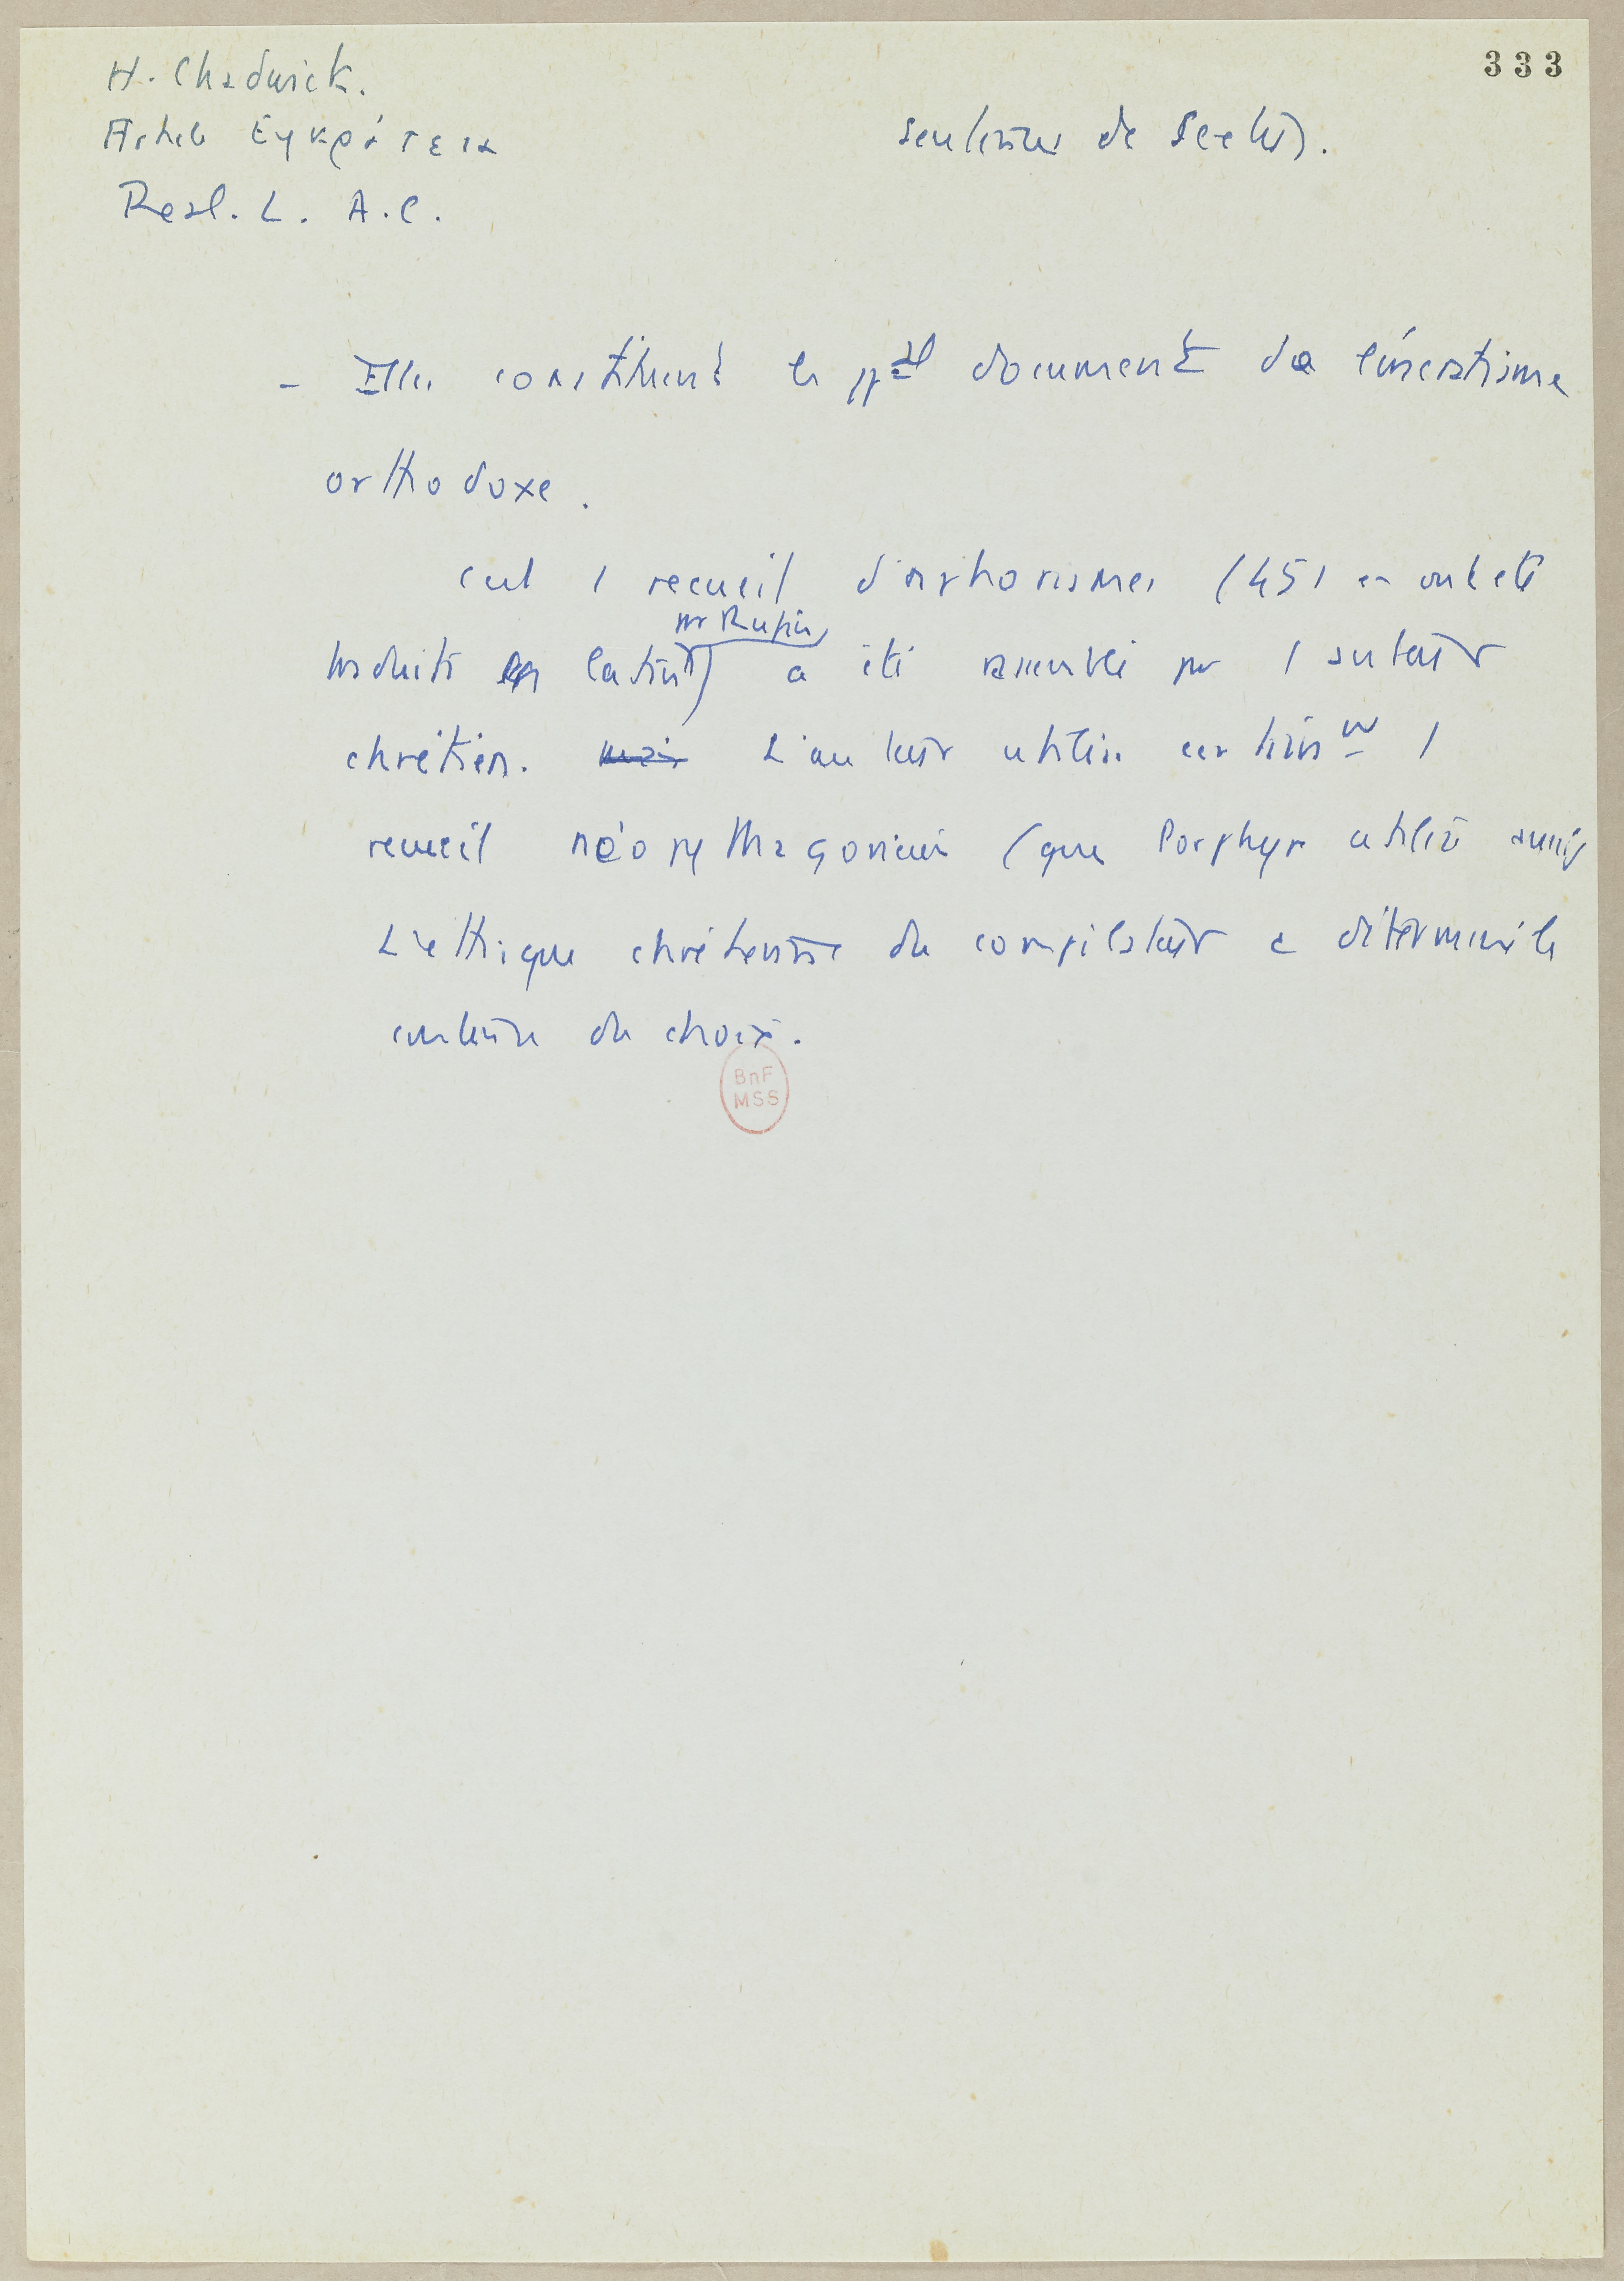 333
H. Chadwick.
Article Εγκράτεια
Real. L. A.C.
Sentences de Sextus.
- Elles constituent le pal document de l'encratisme
orthodoxe.
C'est 1 recueil d'aphorismes (451 en ont été
par Rufin
traduits en latin) a été rassemblé par 1 auteur
chrétien. mais L'auteur utilise certainmt 1
recueil néopythagoricien (que Porphyre utilise aussi)
L'éthique chrétienne du compilateur a déterminé le
contenu du choix.
BnF
MSS